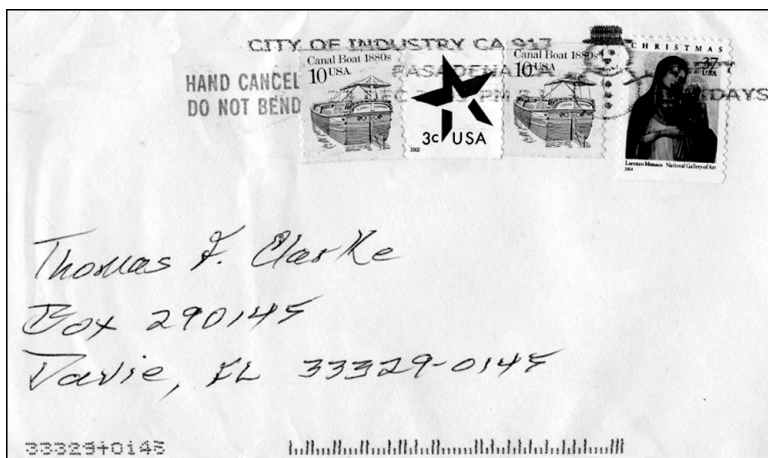 CITY OF INDUSTRY CA 917
PASADENA CA
HAND CANCEL
DO NOT BEND
DEC
PM
DAYS
Canal Boat 1880s
10 USA
3c USA
2002
Canal Boat 1880s
10 USA
CHRISTMAS
37
USA
Lorenzo Monaco National Gallery of Art
2004
Thomas F. Clarke
Box 290145
Davie, FL 33329-0145
33329+0145